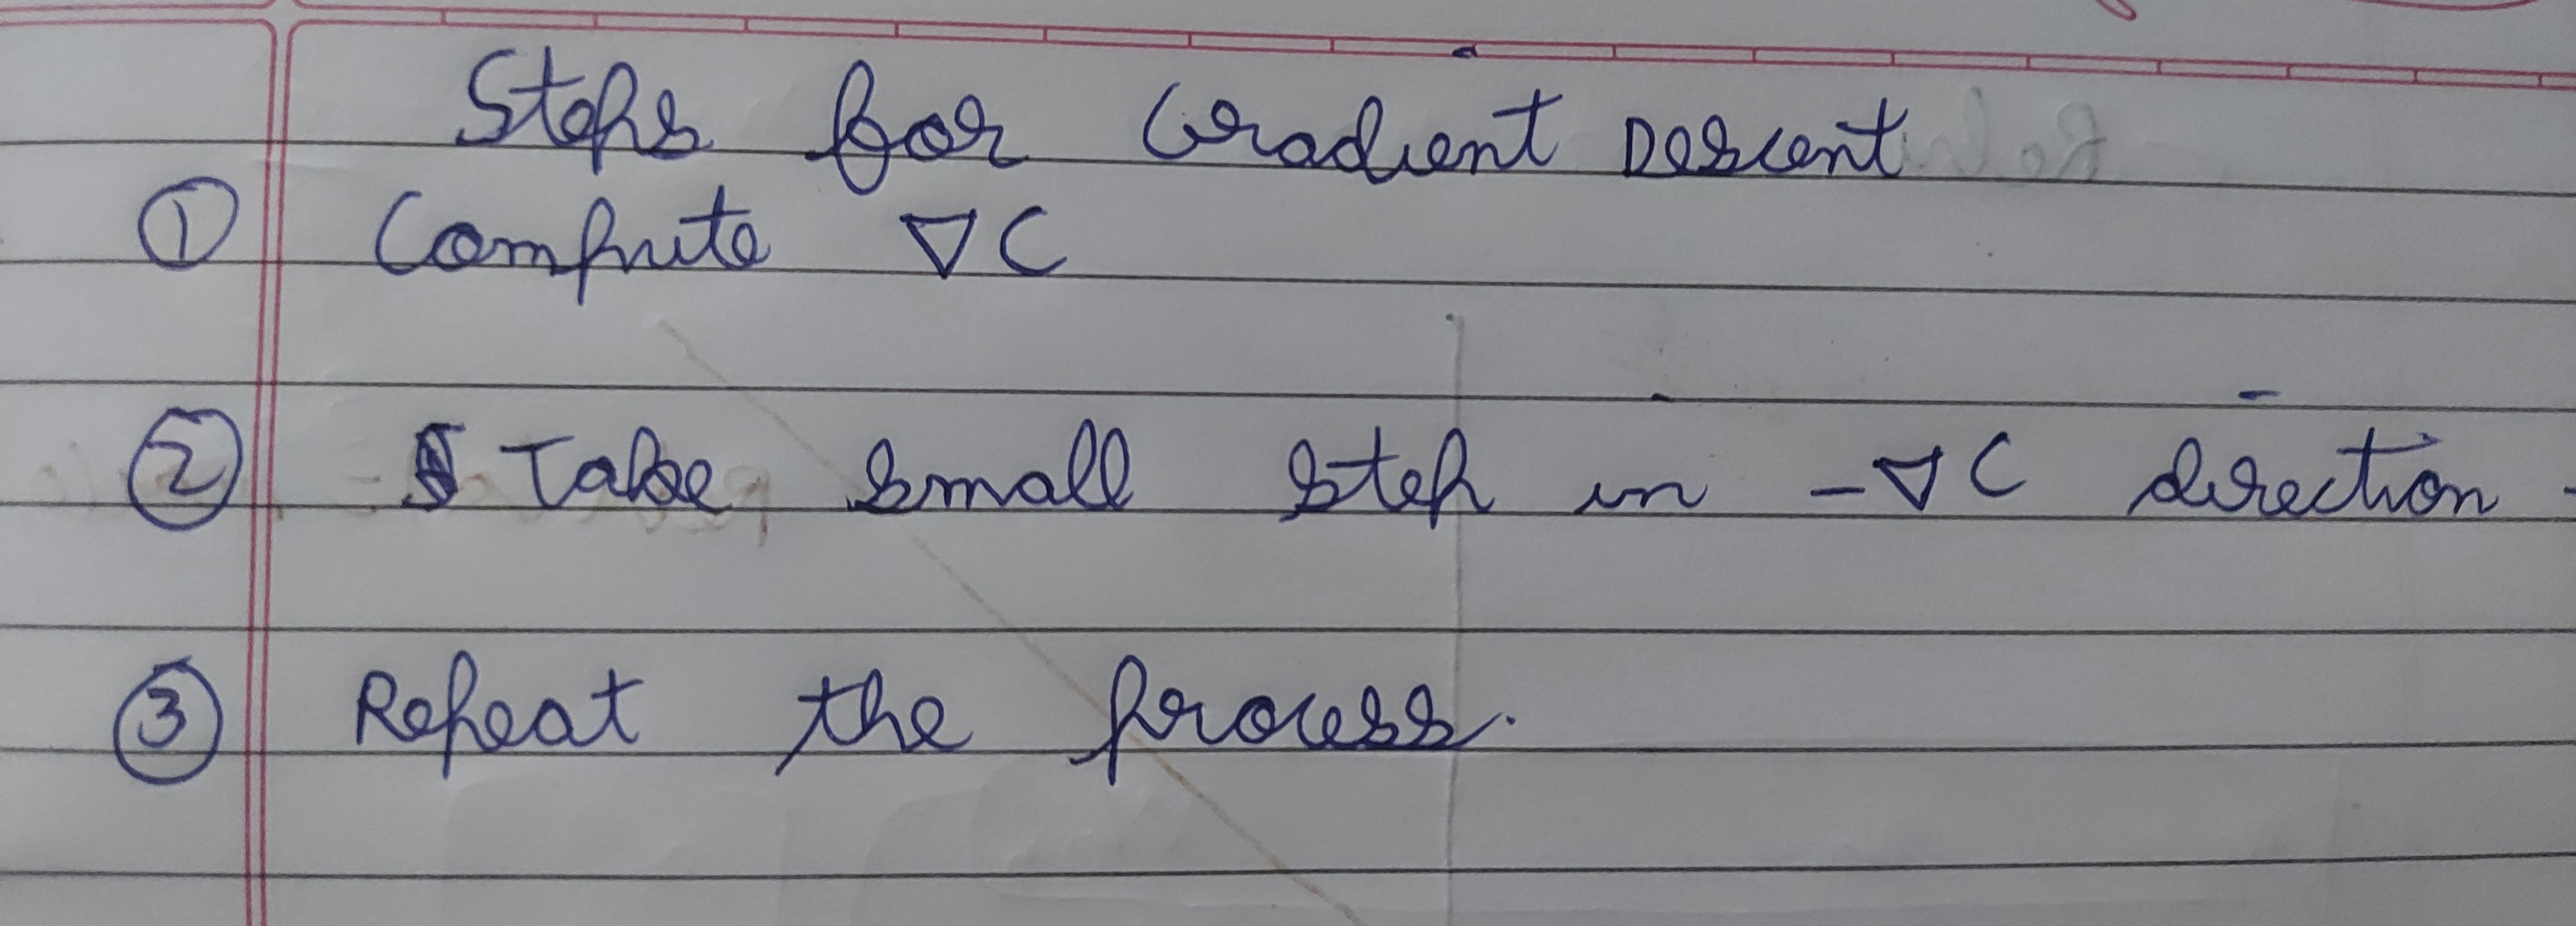 Steps for Gradient Descent
① Compute ∇C
② Take small step in -∇C direction
③ Repeat the process.